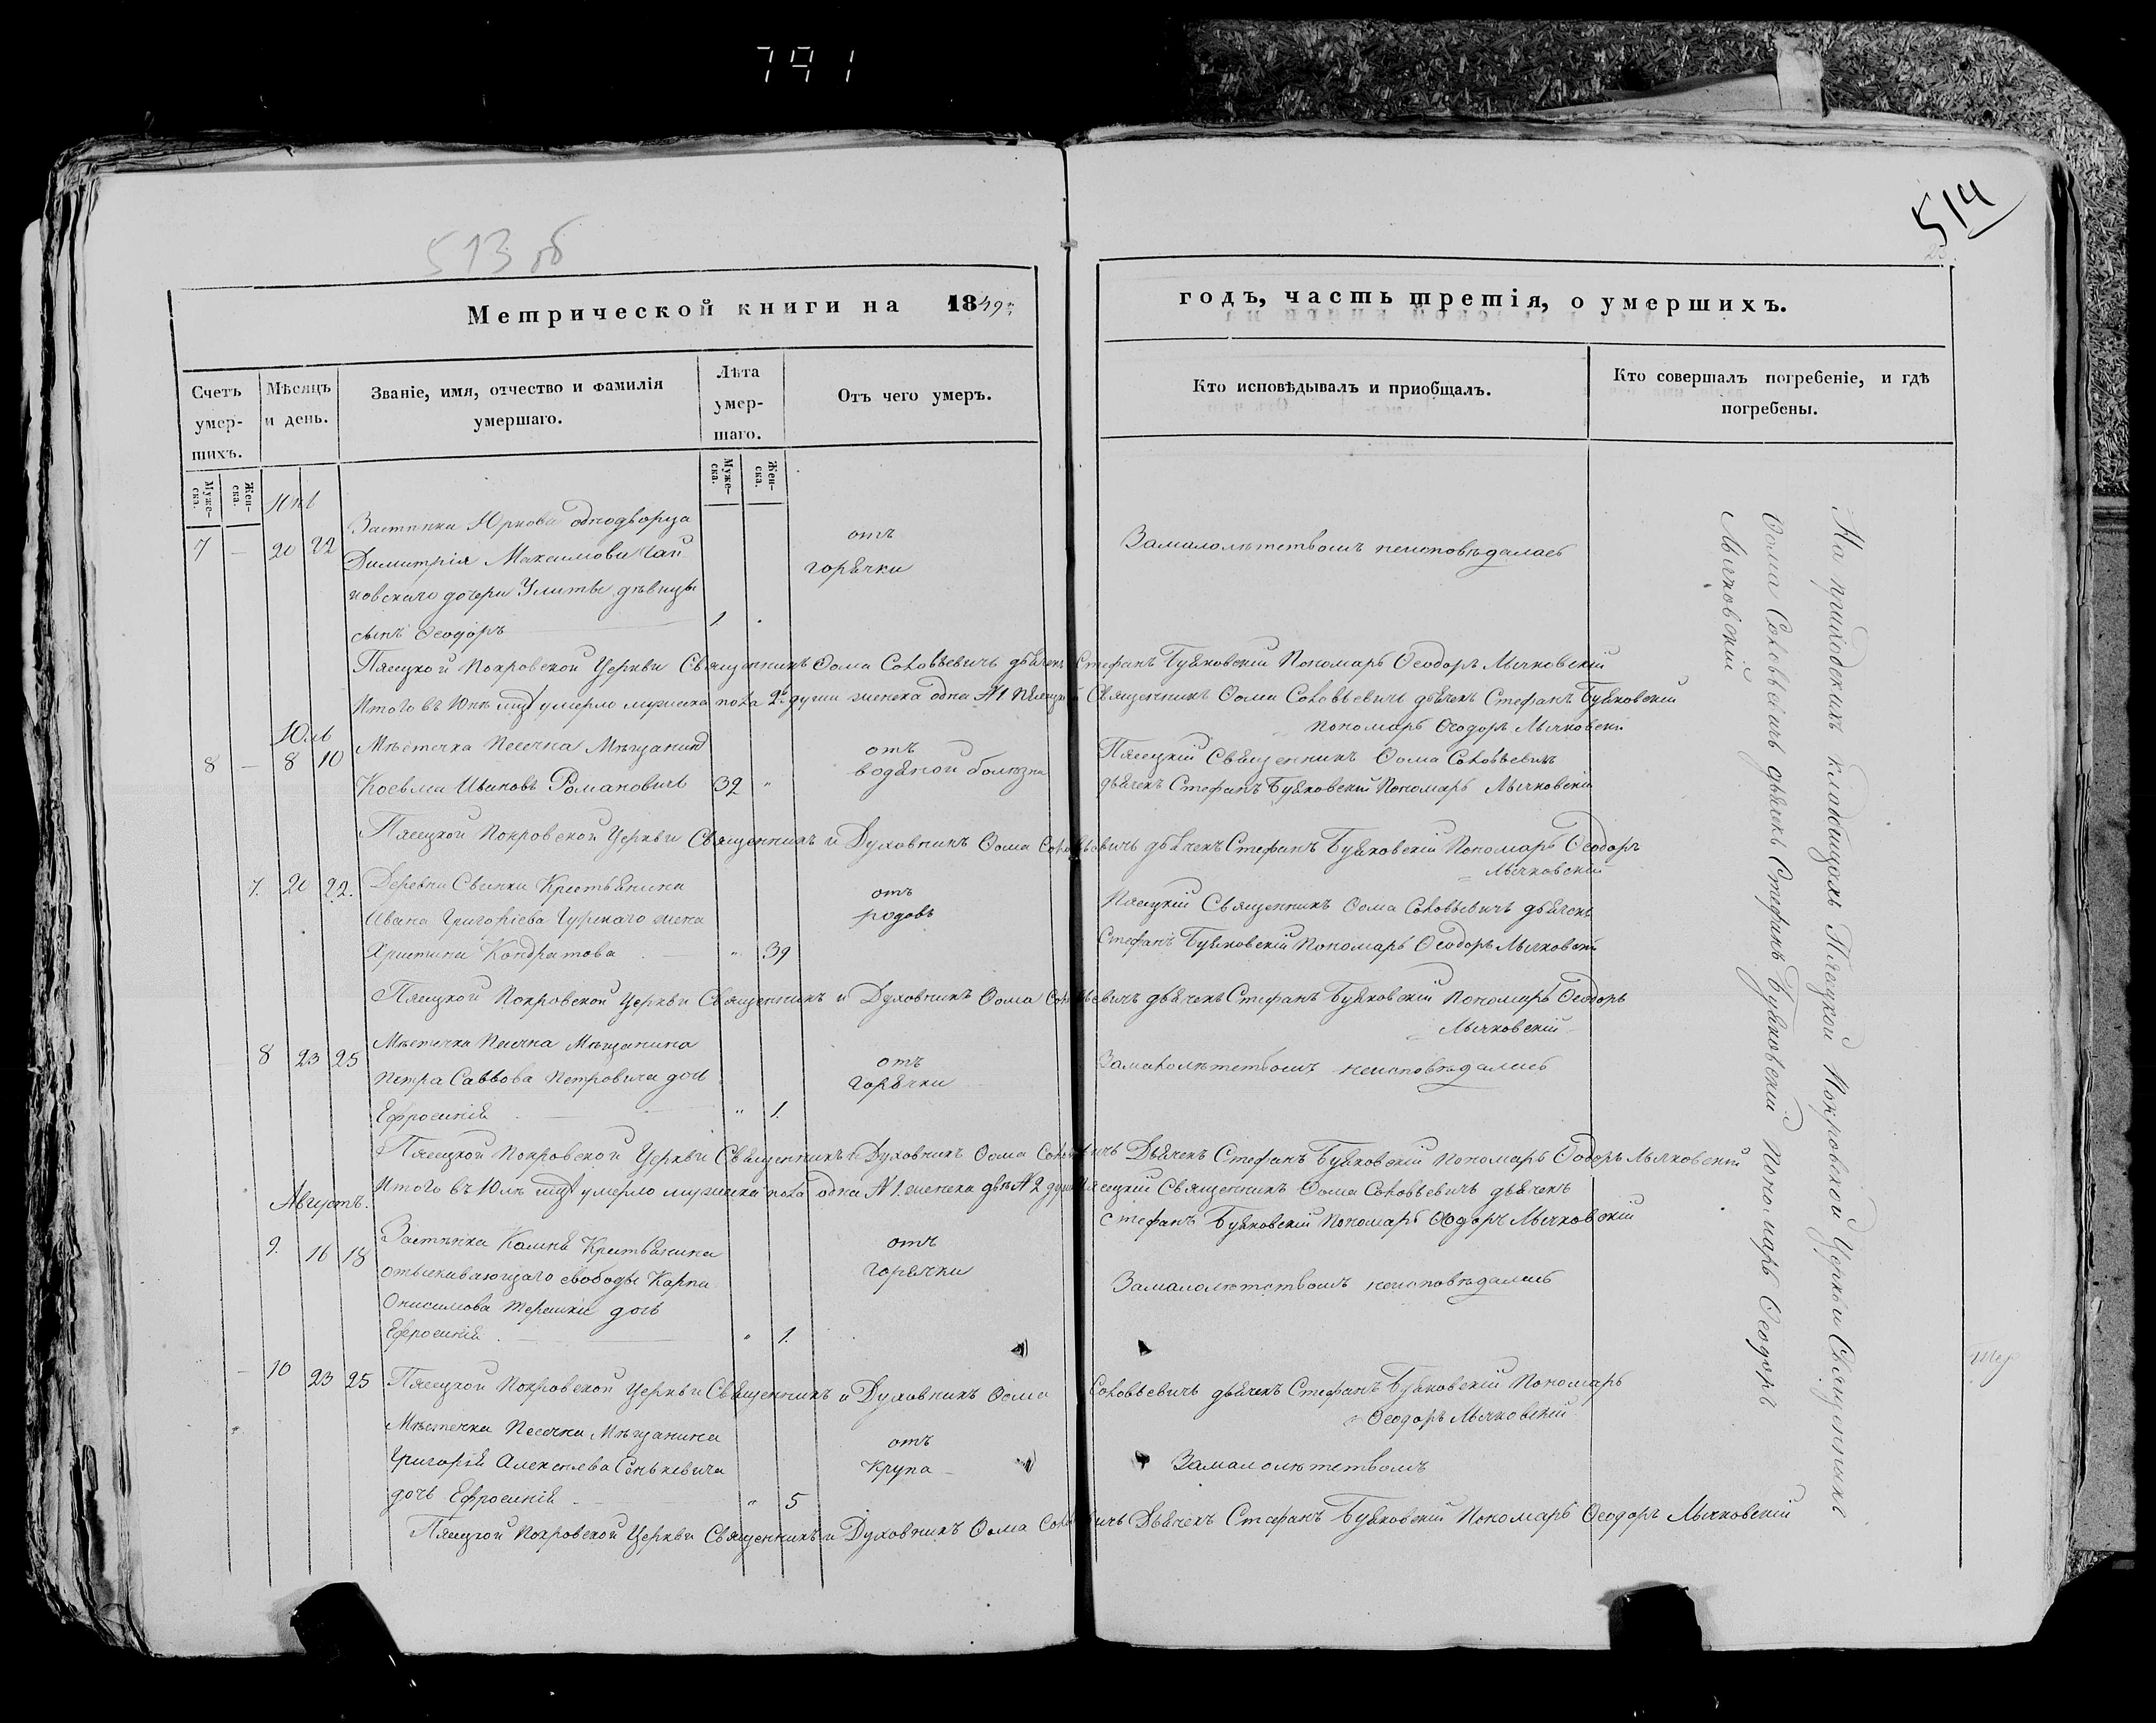 791
513 об
514
Метрической книги на 1849
годъ, часть третія, о умершихъ.
Счетъ умер-шихъ.
Мѣсяцъ и день.
Званіе, имя, отчество и фамилія умершаго.
Лѣта умер-шаго.
Отъ чего умеръ.
Кто исповѣдывалъ и приобщалъ.
Кто совершалъ погребеніе, и гдѣ погребены.
Муже-ска.
Жен-ска.
Муже-ска.
Жен-ска.
Юнь
7 — 20 22
Застѣнка Юркова однодворца
Димитрія Максимова
новскаго дочери Улиты дѣвицы
сынъ Ѳеодоръ 1.
отъ
горячки
Замалолѣтствомъ неисповѣдалась
Пясецкой Покровской Церкви Священникъ Ѳома Соловьевичъ дьячекъ Стефанъ Буяковскій Пономарь Ѳеодоръ Мычковскій
Итого въ Юнѣ мцѣ умерло мужеска пола 2 души женска одна №1 Пясецкій Священникъ Ѳома Соловьевичъ дьячекъ Стефанъ Буяковскій
Пономарь Ѳеодоръ Мычковскій
Юль
8 — 8 10
Мѣстечка Песочна Мѣщанинъ
Косьма Ивановъ Романовичъ 32 "
отъ
водяной болѣзни
Пясецкій Священникъ Ѳома Соловьевичъ
дьячекъ Стефанъ Буяковскій Пономарь Мычковскій
Пясецкой Покровской Церкви Священникъ и Духовникъ Ѳома Соловьевичъ дьячекъ Стефанъ Буяковскій Пономарь Ѳеодоръ
Мычковскій
7. 20 22.
Деревни Свинки Крестьянина
Ивана Григоріева Гурскаго жена
Христина Кондратова " 39
отъ
родовъ
Пясецкій Священникъ Ѳома Соловьевичъ дьячекъ
Стефанъ Буяковскій Пономарь Ѳеодоръ Мычковскій
Пясецкой Покровской Церкви Священникъ и Духовникъ Ѳома Соловьевичъ дьячекъ Стефанъ Буяковскій Пономарь Ѳеодоръ
Мычковскій
8 23 25
Мѣстечка Песочна Мѣщанина
Петра Саввова Петровича дочь
Ефросинія " 1.
отъ
горячки
Замалолѣтствомъ неисповѣдалась
Пясецкой Покровской Церкви Священникъ и Духовникъ Ѳома Соловьевичъ Дьячекъ Стефанъ Буяковскій Пономарь Ѳеодоръ Мычковскій
Итого въ Юлѣ мцѣ умерло мужеска пола одна №1. женска двѣ №2 души Пясецкій Священникъ Ѳома Соловьевичъ дьячекъ
Стефанъ Буяковскій Пономарь Ѳеодоръ Мычковскій
Августъ.
9. 16 18
Застѣнка Крестьянина
отыскивающаго свободы Карпа
Онисимова Терешки дочь
Ефросинія " 1.
отъ
горячки
Замалолѣтствомъ неисповѣдалась
— 10 23 25
Пясецкой Покровской Церкви Священникъ и Духовникъ Ѳома Соловьевичъ дьячекъ Стефанъ Буяковскій Пономарь
Ѳеодоръ Мычковскій
Мѣстечка Песочна Мѣщанина
Григорія Алексѣева Сенькевича
дочь Ефросинія " 5
отъ
Крупа
Замалолѣтствомъ
Пясецкой Покровской Церкви Священникъ и Духовникъ Ѳома Соловьевичъ Дьячекъ Стефанъ Буяковскій Пономарь Ѳеодоръ Мычковскій
На приходскихъ кладбищахъ Пясецкой Покровской Церкви Священникъ
Ѳома Соловьевичъ дьячекъ Стефанъ Буяковскій Пономарь Ѳеодоръ
Мычковскій